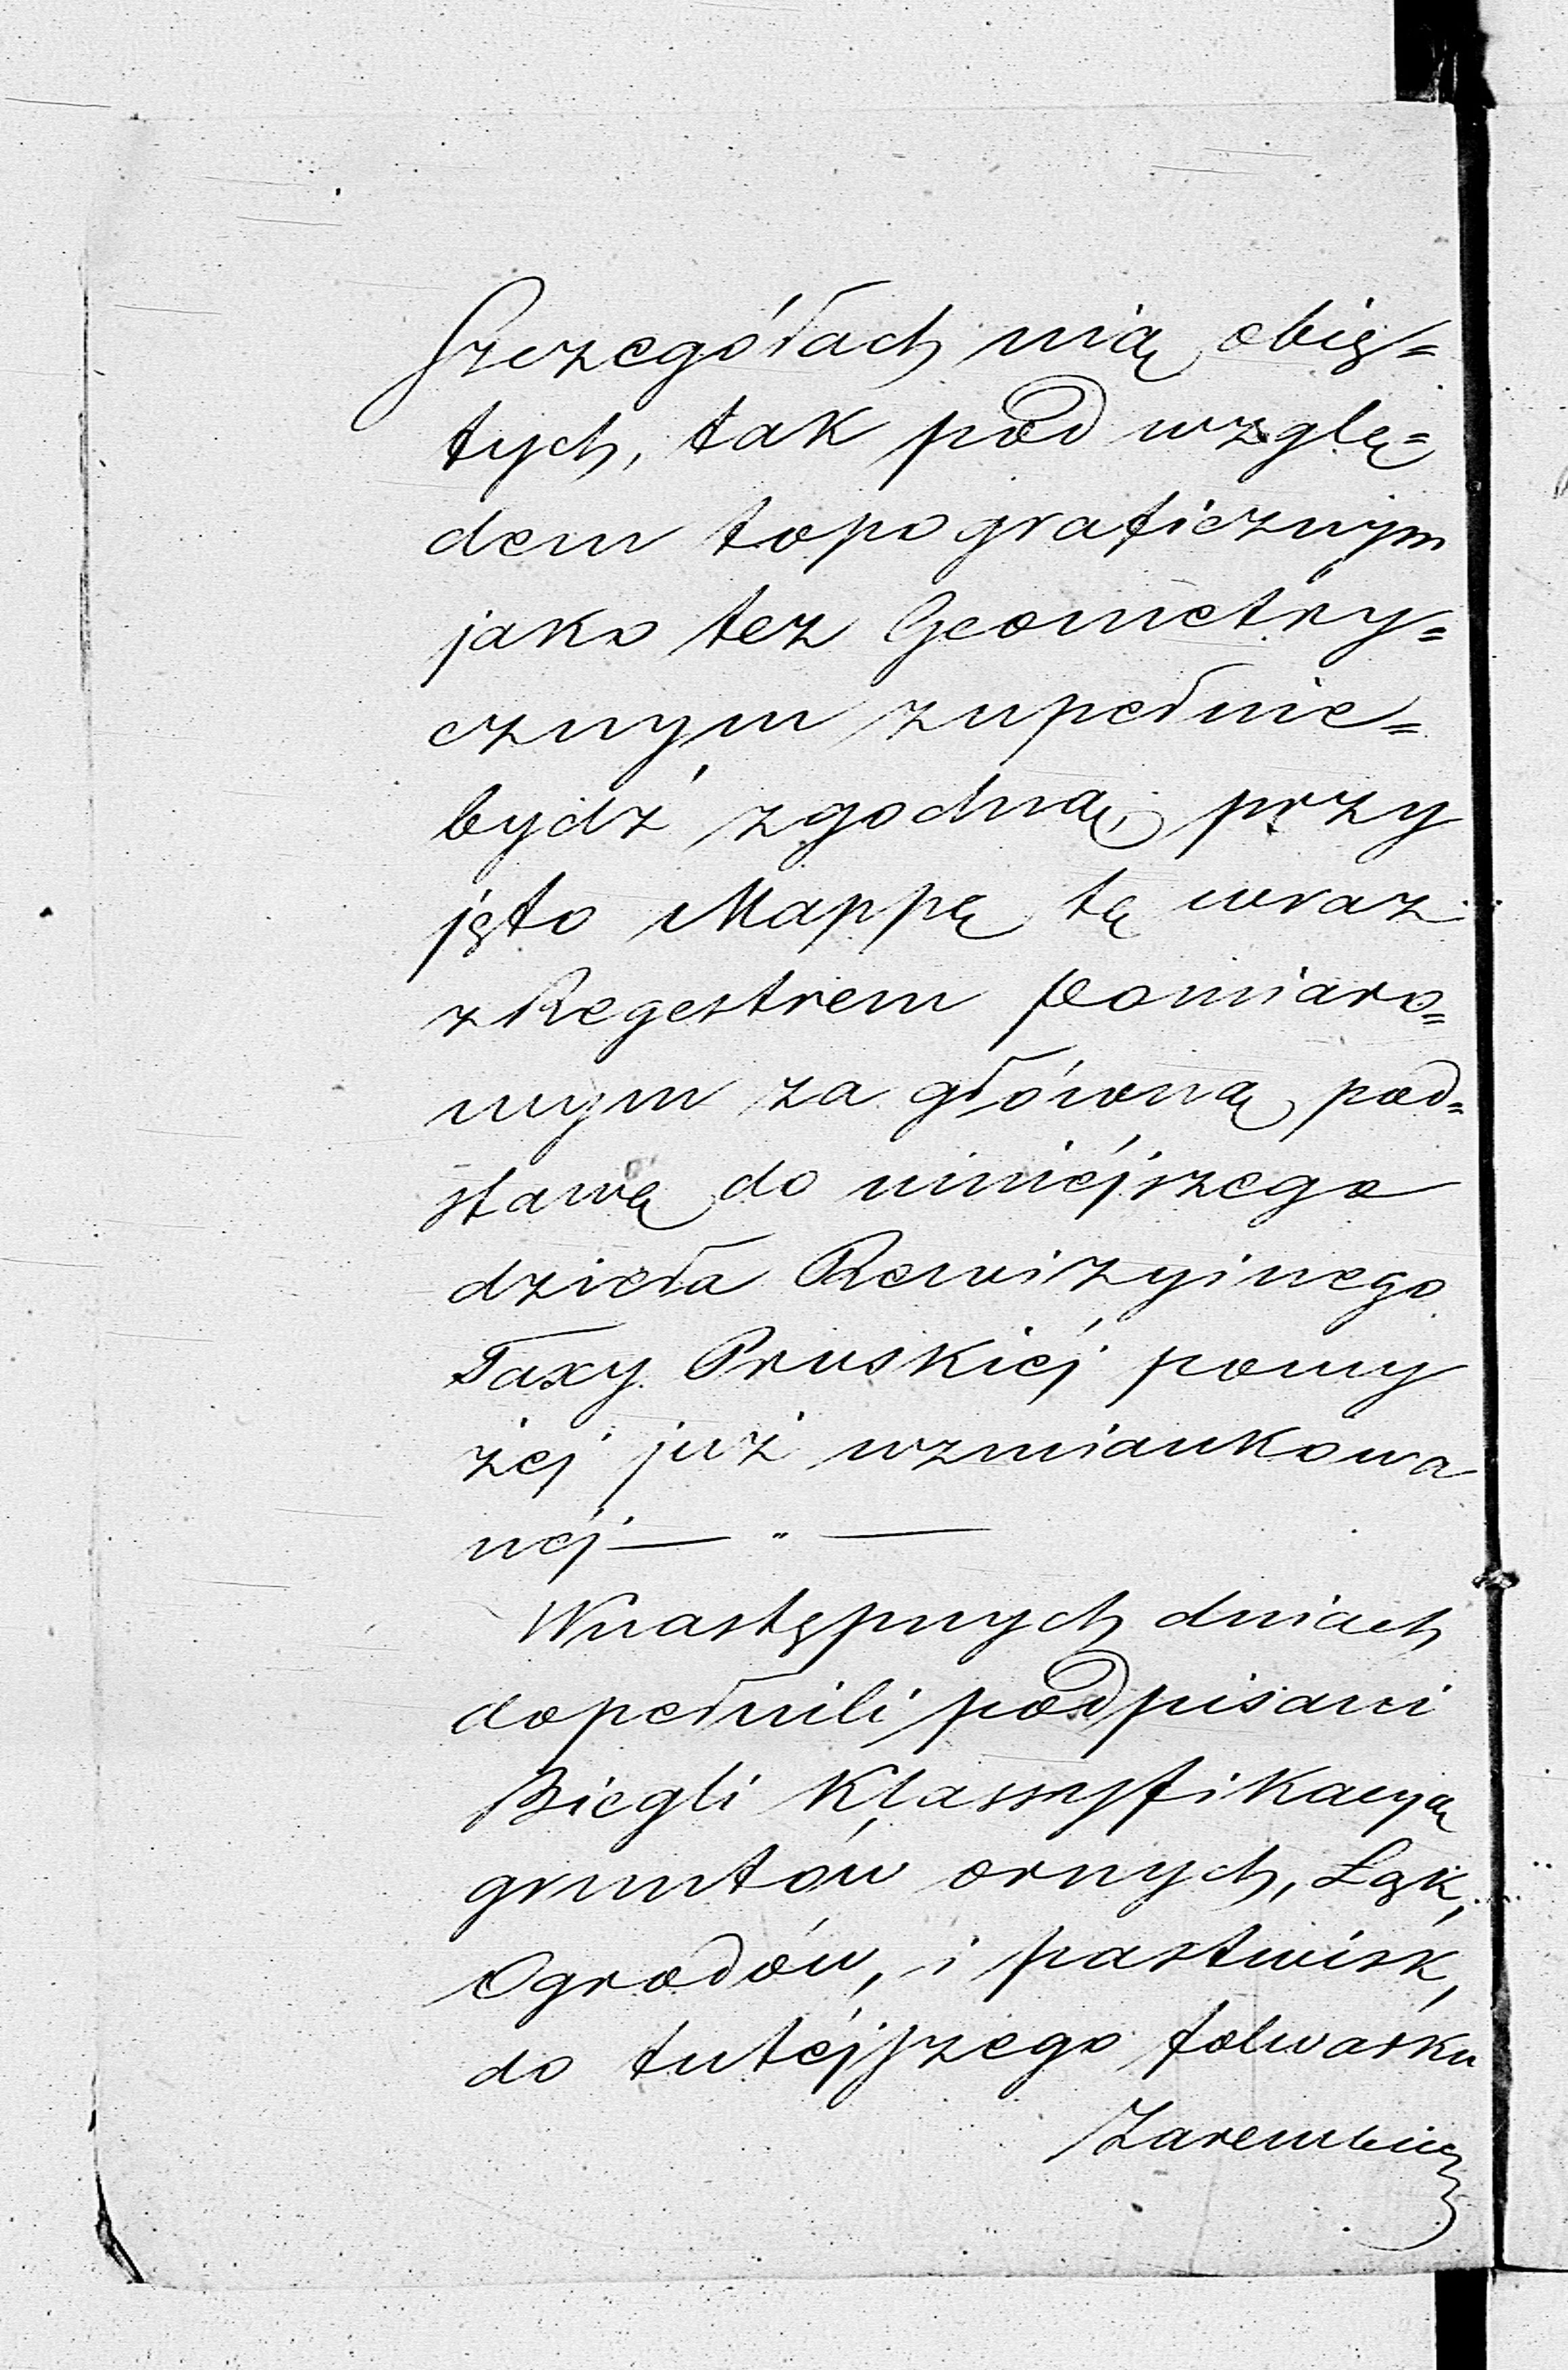 Szczegółach nią obię=
tych, tak pod wzglę=
dem topograficznym
jako tez Geometry=
cznym zupełnie=
bydź zgodną, przy
jęto Mappę tę wraz
z Regestrem Pomiaro=
wym za główną pod=
stawę do niniéjszego
dzieła Rewizyinego
Taxy Pruskiéj powy
żej już wzmiankowa
néj — " —
W następnych dniach
dopełnili podpisani
Biegli Klassyfikacyą
gruntów ornych, Łąk,
Ogrodów, i pastwisk,
do tutéjszego folwarku